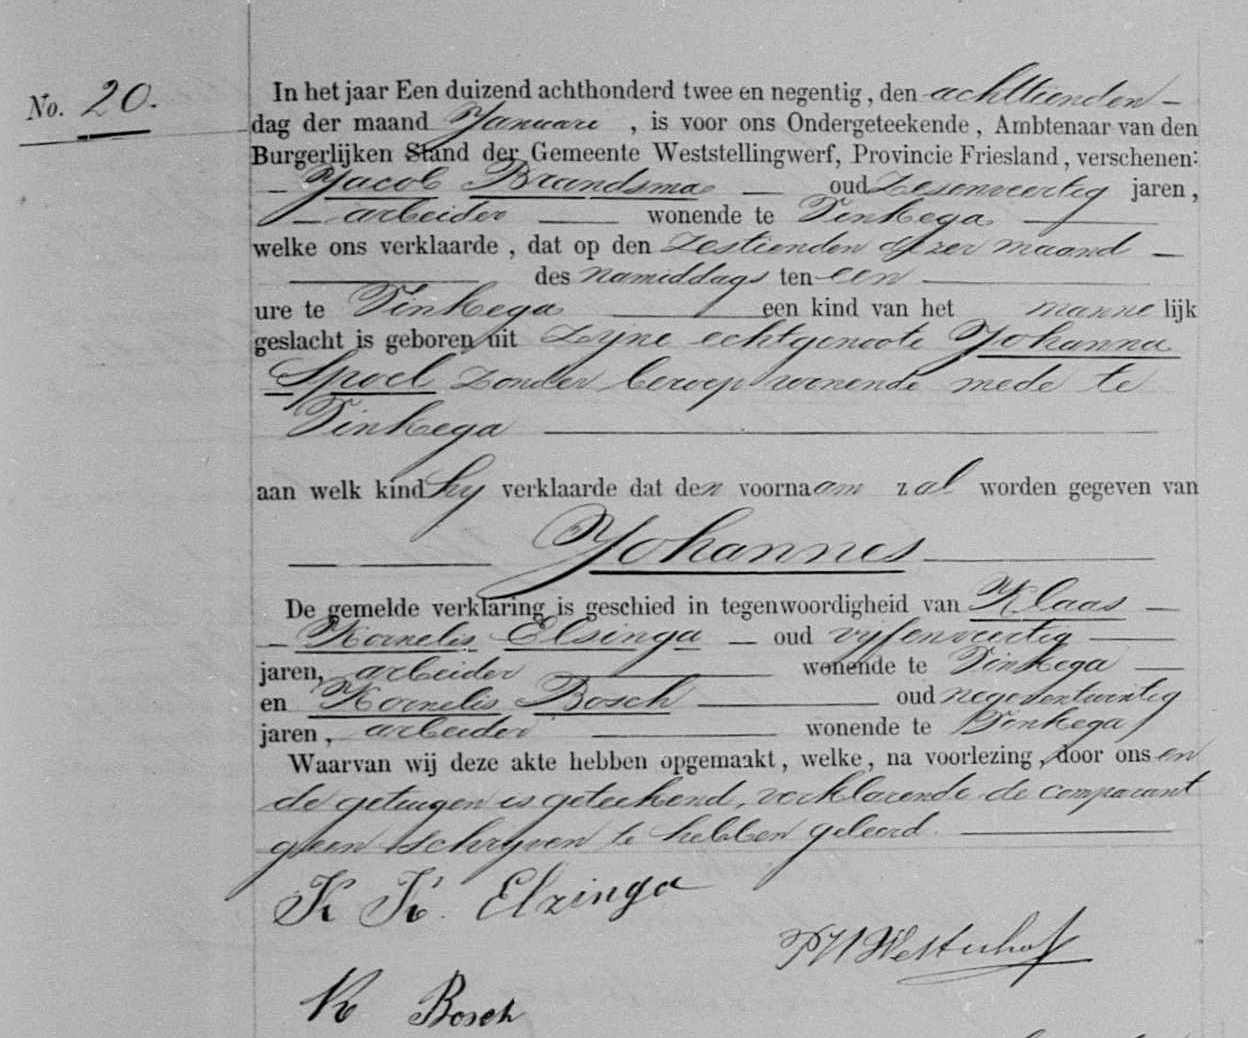 No. 20.
In het jaar Een duizend achthonderd twee en negentig, den achttienden
dag der maand Januari, is voor ons Ondergeteekende, Ambtenaar van den
Burgerlijken Stand der Gemeente Weststellingwerf, Provincie Friesland, verschenen:
Jacob Brandsma oud zesenveertig jaren,
arbeider wonende te Vinkega
welke ons verklaarde, dat op den zestienden dezer maand
des namiddags ten een
ure te Vinkega een kind van het mannelijk
geslacht is geboren uit zijne echtgenoote Johanna
Spoel zonder beroep wonende mede te
Vinkega
aan welk kind hij verklaarde dat den voornaam zal worden gegeven van
Johannes
De gemelde verklaring is geschied in tegenwoordigheid van Klaas
Kornelis Elsinga oud vijfenveertig
jaren, arbeider wonende te Vinkega
en Kornelis Bosch oud negenentwintig
jaren, arbeider wonende te Vinkega
Waarvan wij deze akte hebben opgemaakt, welke, na voorlezing, door ons en
de getuigen is geteekend, verklarende de comparant
geen schrijven te hebben geleerd.
K K. Elzinga
Westerhof
K Bosch